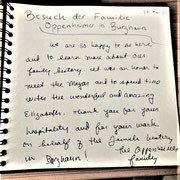 Besuch der Familie
Oppenheimer in Burghaun
We are so happy to be here
and to learn more about our
family history. It was an honor to
meet the Mayor and to spend time
with the wonderful and amazing
Elizabeth. Thank you for your
hospitality and for your work
on behalf of the Jewish history
in Burghaun!
The Oppenheimer
family